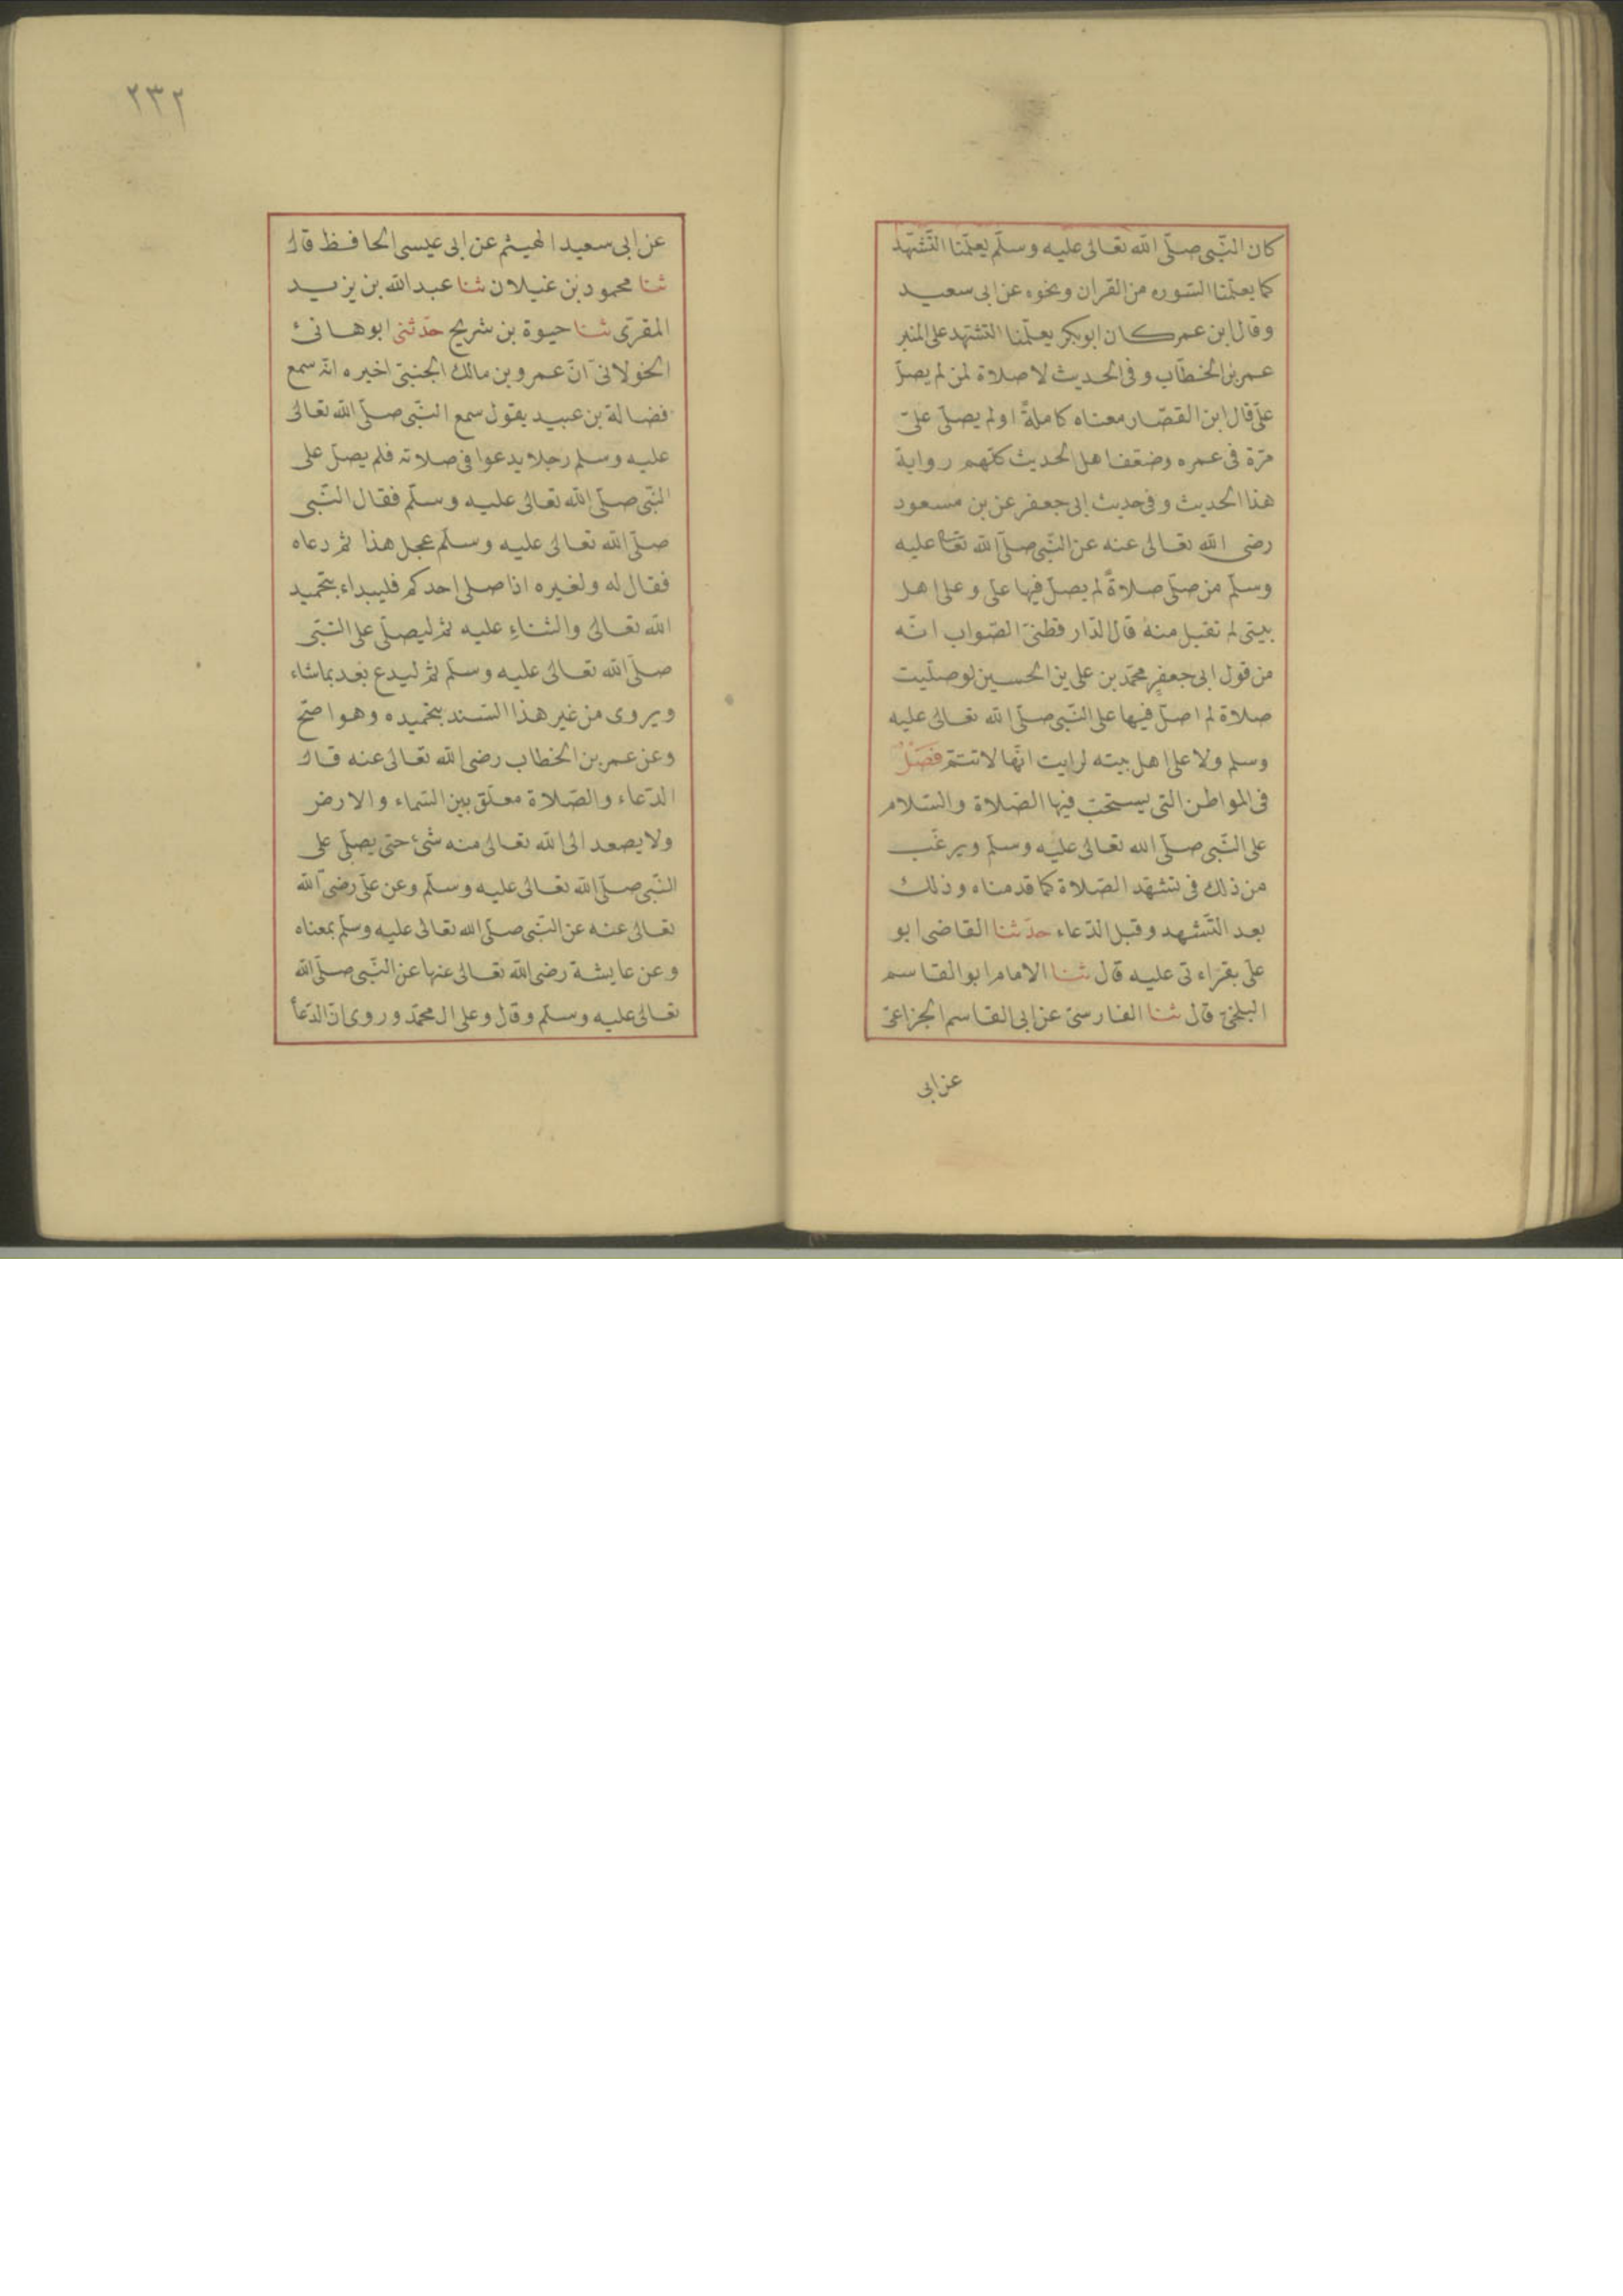 كان النّبى صلّى الله تعالى عليه وسلّم يعلّمنا التّشهّد
كما يعلّمنا السّوره من القران ونحوه عن ابى سعيد
وقال ابن عمر كان ابوبكر يعلّمنا التشّهد على المنبر
عمر بن الخطّاب وفى الحديث لا صلاة لمن لم يصلّ
علىّ قال ابن القصّار معناه كاملةً او لم يصلّى علىّ
مرّة فى عمره وضعّف اهل الحديث كلّهم رواية
هذا الحديث وفى حديث ابى جعفر عن بن مسعود
رضى الله تعالى عنه عن النّبى صلّى الله تعالى عليه
وسلّم من صلّى صلاةً لم يصلّ فيها علىّ وعلى اهل
بيتى لم تقبل منه قال الدّار قطنىّ الصّواب انّه
من قول ابى جعفر محمّد بن على بن الحسين لو صلّيت
صلاة لم اصلّ فيها على النّبى صلّى الله تعالى عليه
وسلم ولا على اهل بيته لرايت انّها لا تتمّ فَصْلٌ
فى المواطن التى يستحبّ فيها الصّلاة والسّلام
على النّبى صلّى الله تعالى عليه وسلّم ويرغّب
من ذلك فى تشهّد الصّلاة كما قدمناه وذلك
بعد التّشهد وقبل الدّعاء حدّثنا القاضى ابو
علىّ بقراءتى عليه قال ثنا الامام ابو القاسم
البلخىّ قال ثنا الفارسىّ عن ابى القاسم الجزاعىّ
عن ابى
٢٣٢
عن ابى سعيد الهيثم عن ابى عيسى الحافظ قال
ثنا محمود بن غيلان ثنا عبد الله بن يزيد
المقرّى ثنا حيوة بن شريح حدّثنى ابو هانئ
الخولانىّ انّ عمرو بن مالك الجنبىّ اخبره انّه سمع
فضالة بن عبيد يقول سمع النّبى صلّى الله تعالى
عليه وسلم رجلا يدعوا فى صلاته فلم يصلّ على
النّبى صلّى الله تعالى عليه وسلّم فقال النّبى
صلّى الله تعالى عليه وسلّم عجل هذا ثم دعاه
فقال له ولغيره اذا صلى احدكم فليبداء بتحميد
الله تعالى والثناءِ عليه ثم ليصلّى على النّبى
صلّى الله تعالى عليه وسلّم ثم ليدع بعد بما شاء
ويروى من غير هذا السّند بتحميده وهو اصحّ
وعن عمر بن الخطاب رضى الله تعالى عنه قال
الدّعاء والصّلاة معلّق بين السّماء والارض
ولا يصعد الى الله تعالى منه شئ حتى يصلّى على
النّبى صلّى الله تعالى عليه وسلّم وعن علىّ رضى الله
تعالى عنه عن النّبى صلّى الله تعالى عليه وسلّم بمعناه
وعن عايشة رضى الله تعالى عنها عن النّبى صلّى الله
تعالى عليه وسلّم وقال وعلى ال محمّد وروى انّ الدّعأ